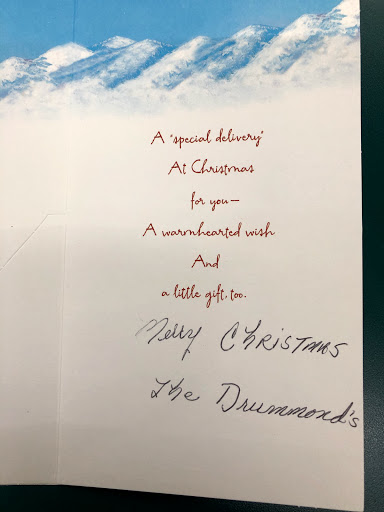 A "special delivery"
At Christmas
for you—
A warmhearted wish
And
a little gift, too.
Merry Christmas
The Drummond's